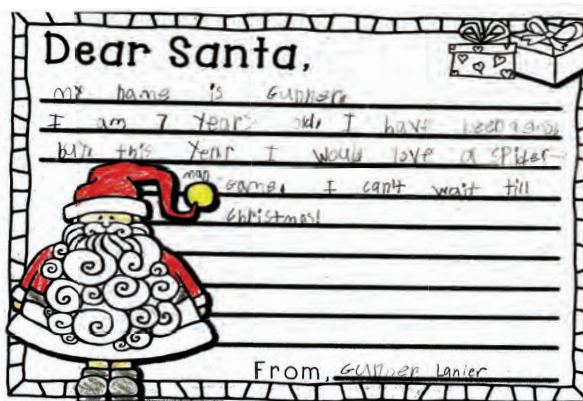 Dear Santa,
my name is Gunner.
I am 7 years old. I have been a
this year I woud love a spider-
man
game. I can't wait till
christmas!
From, Gunner Lanier